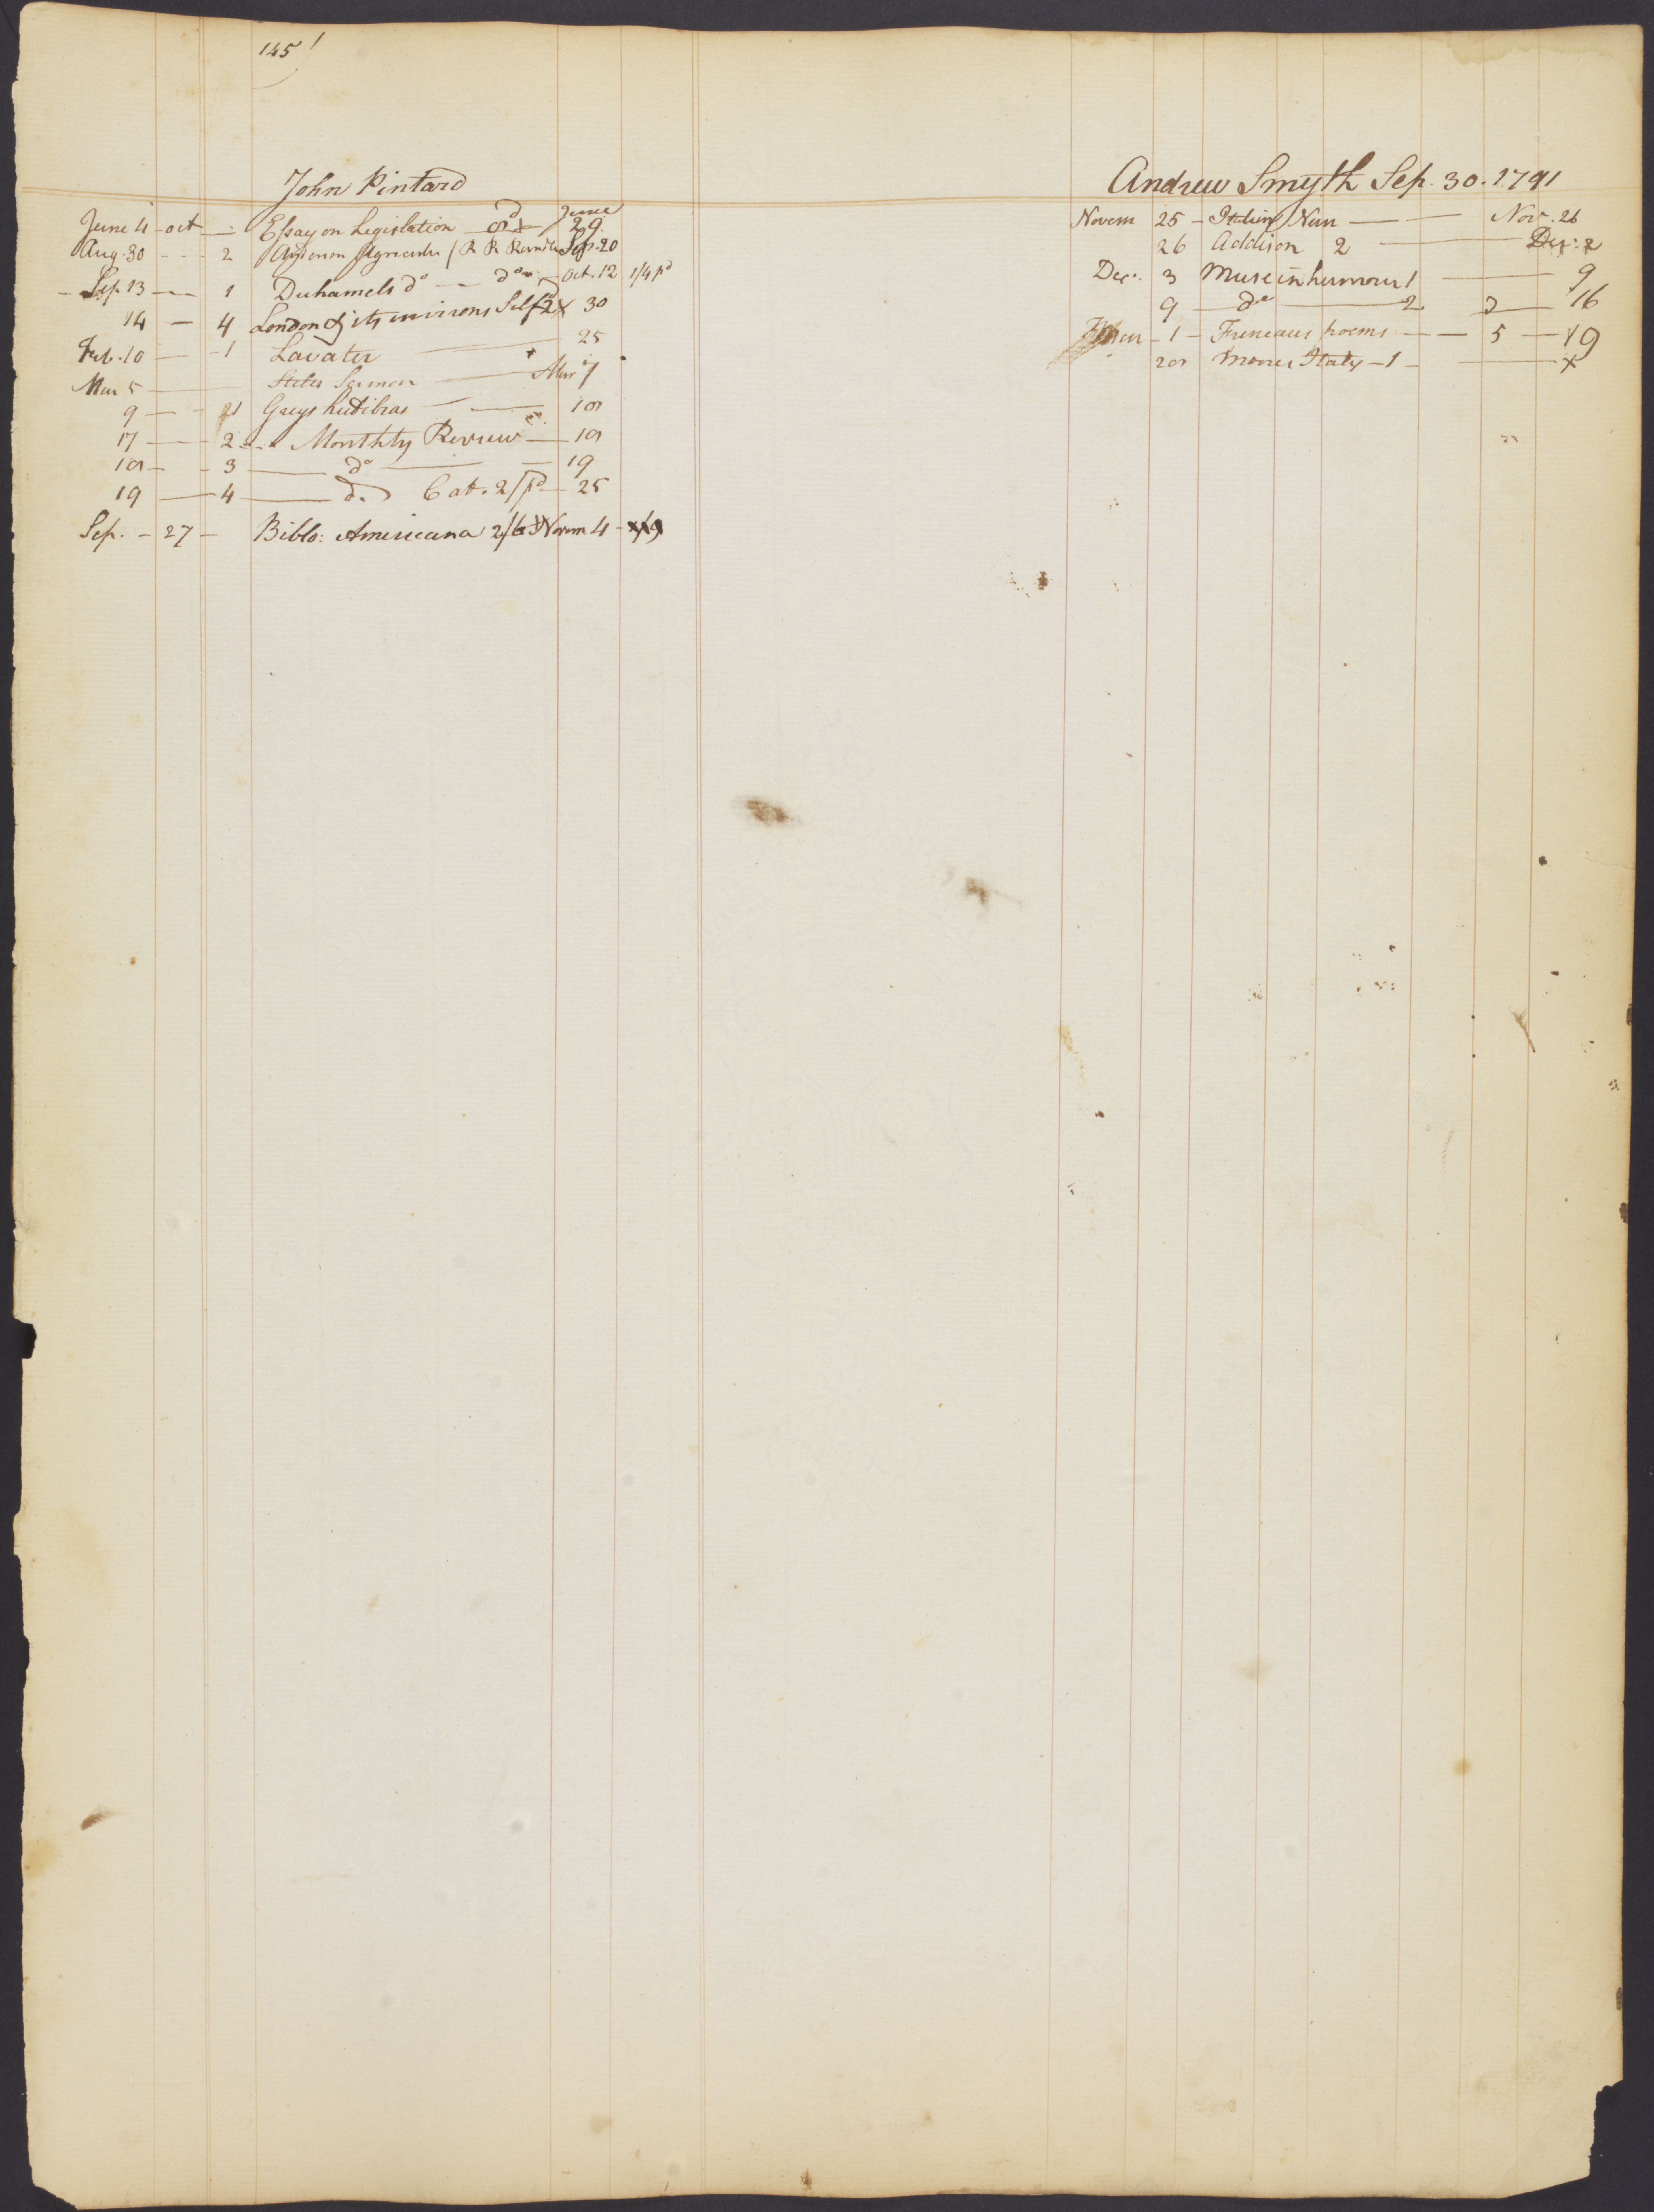 145
John Pintard
June 4 - oct — Essay on Legislation 8d x June 29
Aug. 30 - - - 2 Anderson Agricultr / R R Sep. 20
- Sep. 13 — 1 Duhamels do — do Oct. 12 1/4 pd
14 — 4 London & its environs Self 2 x 30
Feb. 10 — 1 Lavater — 25
Mar 5 — Stiles Sermon — Mar 7
9 — 1 Grays hudibras — 10
17 — 2 Monthly Review — 18
18 - - 3 — do — 19
19 — 4 — do Cat. 2/ pd — 25
Sep. - 27 - Biblo: Americana 2/6 Novem 4 -
Andrew Smyth Sep. 30. 1791
Novem 25 - Italian Nun — Nov. 26
26 Addison 2 — Der: 2
Der. 3 Muse in humour 1 — 9
9 — do — 2 2 — 16
- 1 - Freneaus poems — 5 — 19
20 Moores Italy - 1 - — x